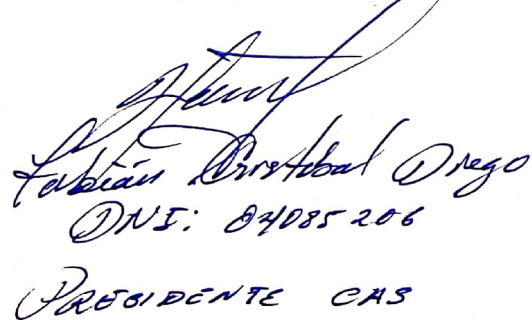 Fabián Cristobal Diego
DNI: 04085206
PRESIDENTE CAS